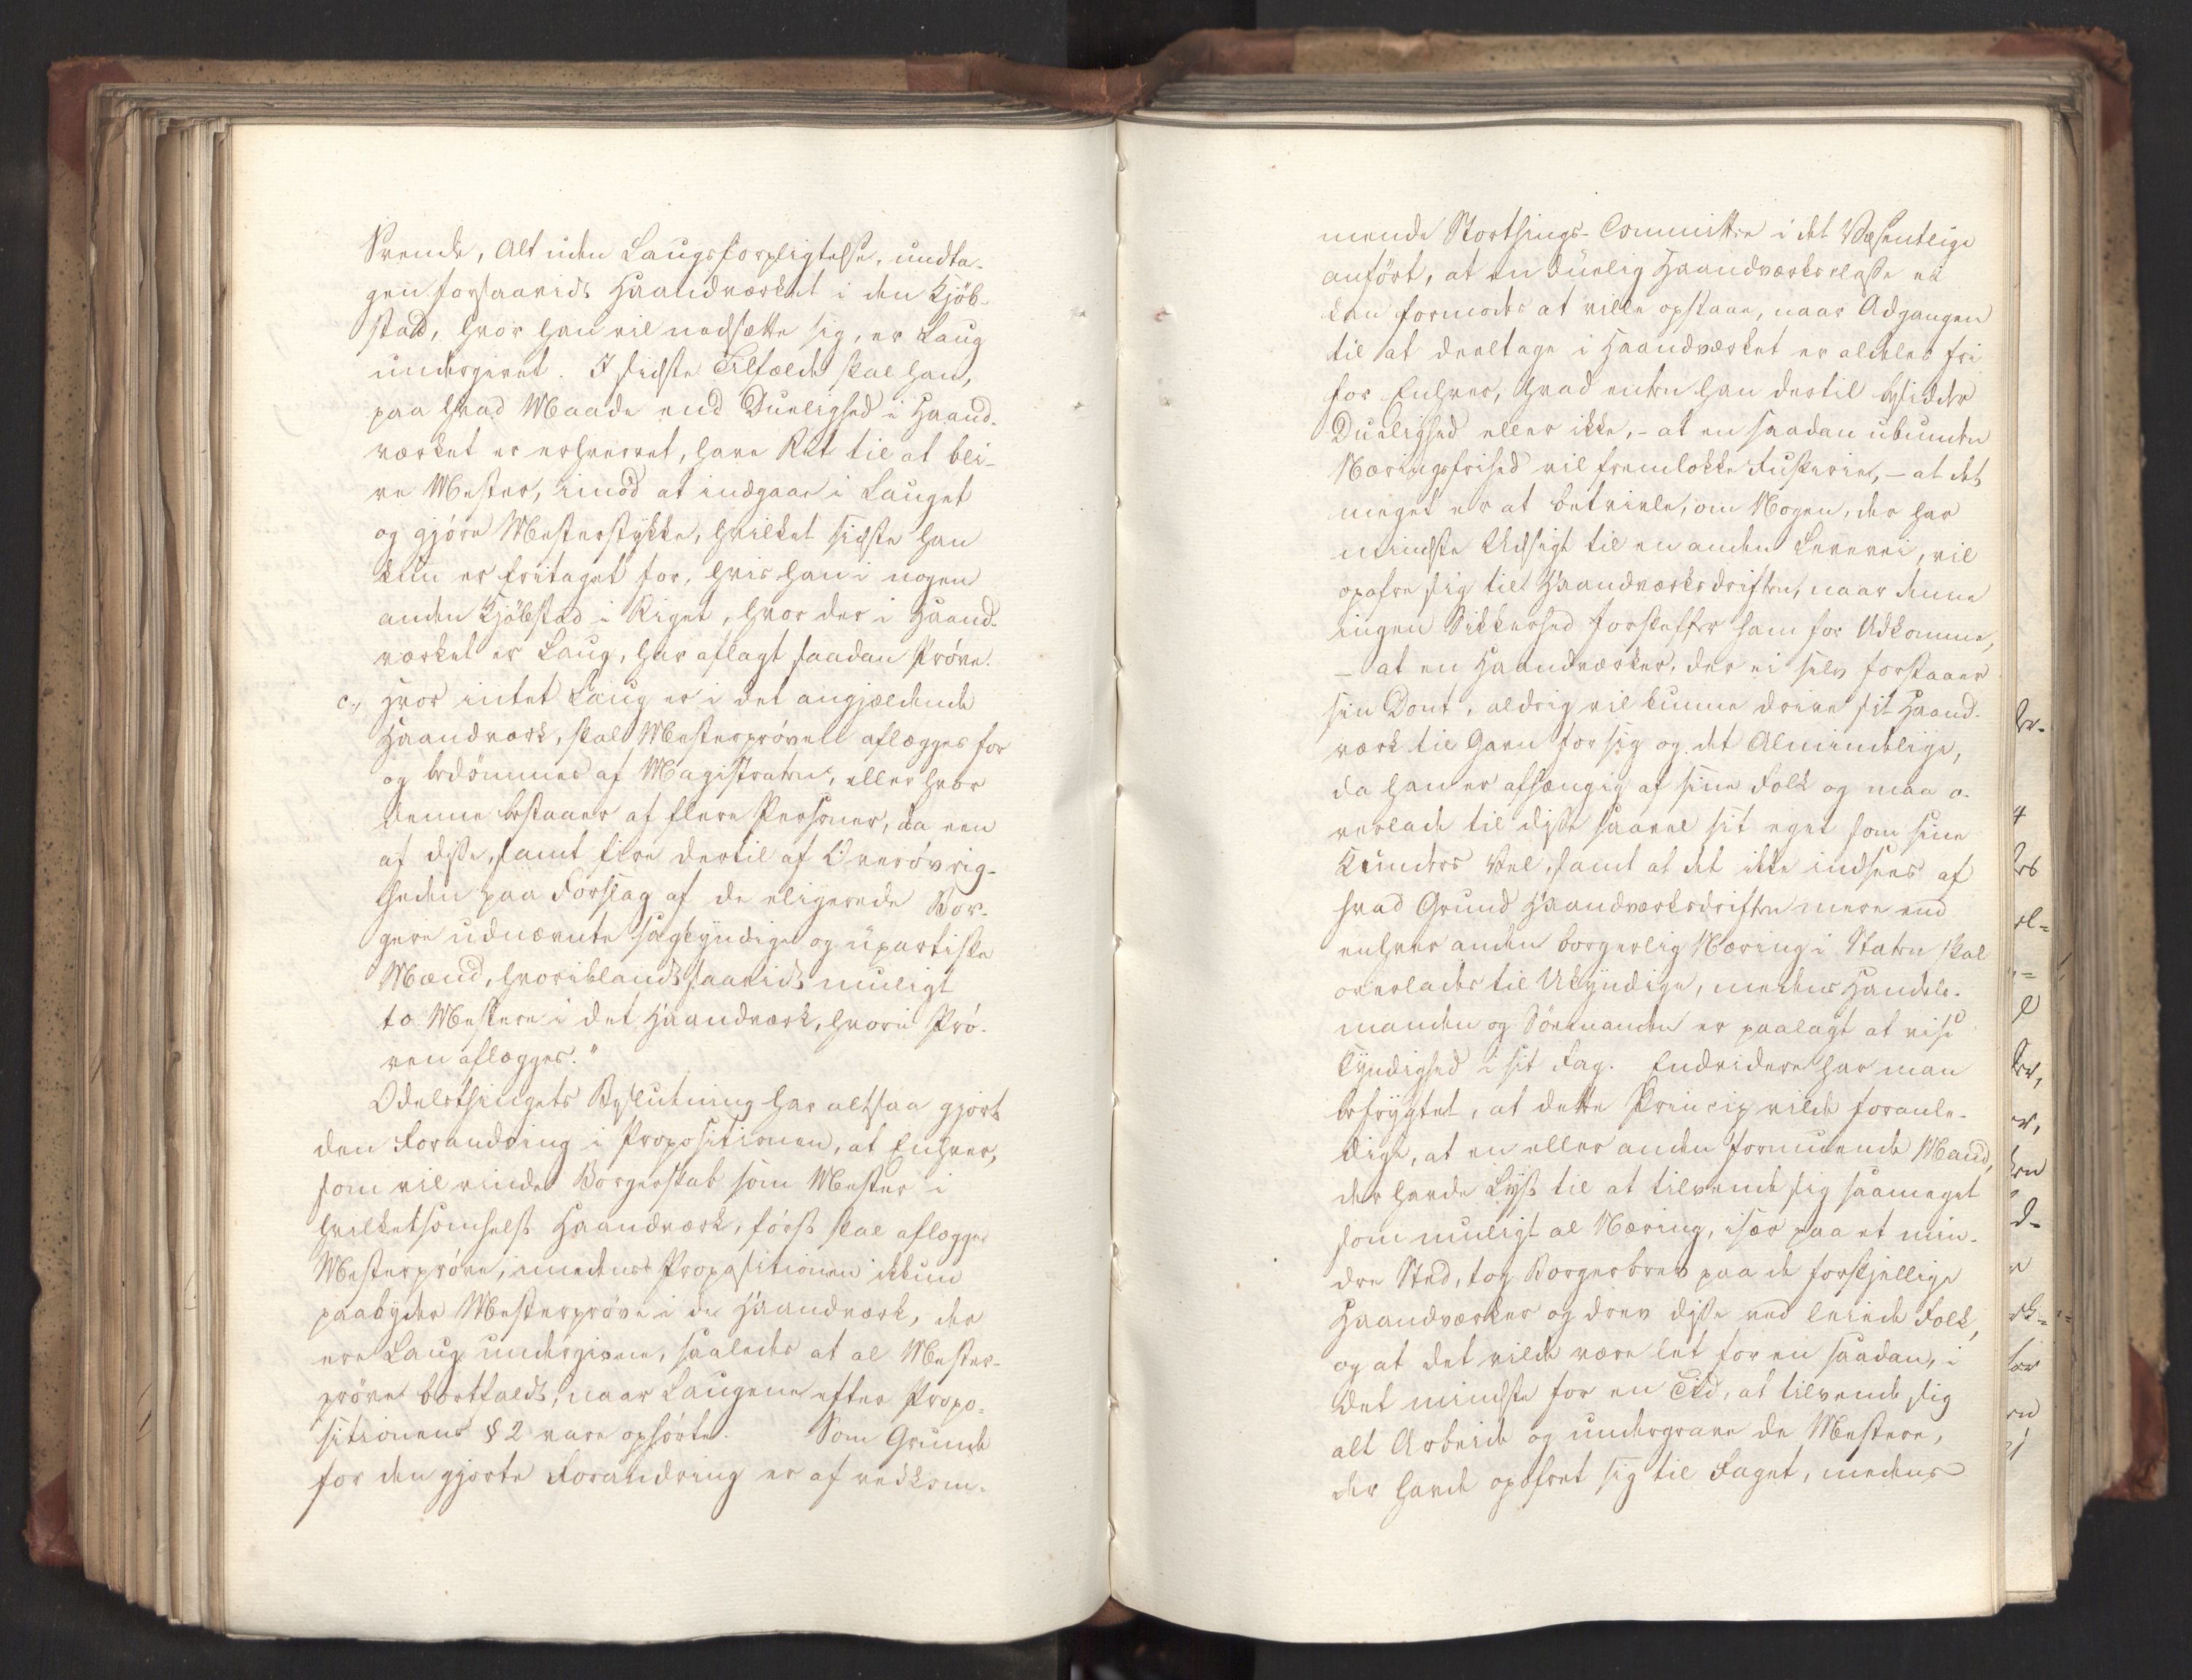 Svende, Alt uden Laugsforpligtelse, undta-
gen forsaavidt Haandværket i den Kjöb-
stad, hvor han vil nedsætte sig, er Laug
undergivet. I sidste Tilfælde skal han,
paa hvad Maade end Duelighed i Haand-
værket er erhvervet, have Ret til at bli-
ve Mester, imod at indgaae i Lauget
og gjöre Mesterstykke, hvilket sidste han
kun er fritaget for, hvis han i nogen
anden Kjöbstad i Riget, hvor der i Haand-
værket er Laug, har aflagt saadan Pröve.
c., Hvor intet Laug er i det angjældende
Haandværk, skal Mesterpröven aflægges for
og bedömmes af Magistraten, eller hvor
denne bestaaer af flere Personer, da een
af disse, samt fire dertil af Överövrig-
heden paa Forslag af de eligerede Bor-
gere udnævnte sagkyndige og upartiske
Mænd, hvoriblandt saavidt muligt
to Mestere i det Haandværk, hvori Prö-
ven aflægges."
Odelsthingets Beslutning har altsaa gjort
den Forandring i Propositionen, at Enhver,
som vil vinde Borgerskab som Mester i
hvilketsomhelst Haandværk, först skal aflægge
Mesterpröve, imedens Propositionen ikkun
paabyder Mesterpröve i de Haandværk, der
ere Laug undergivne, saaledes at al Mester-
pröve bortfaldt, naar Laugene efter Propo-
sitionens § 2 vare ophörte. Som Grunde
for den gjorte Forandring er af vedkom-
mende Storthings-Committee i det Væsentlige
anfört, at en duelig Haandværksclasse ei
kan formodes at ville opstaae, naar Adgangen
til at deeltage i Haandværket er aldeles fri
for Enhver, hvad enten han dertil besidder
Duelighed eller ikke, - at en saadan ubunden
Næringsfrihed vil fremlokke Fuskerier, - at det
meget er at betvivle, om Nogen, der har
mindste Udsigt til en anden Levevei, vil
opofre sig til Haandværksdriften, naar denne
ingen Sikkerhed forskaffer ham for Udkomme,
- at en Haandværker, der ei selv forstaaer
sin Dont, aldrig vil kunne drive sit Haand-
værk til Gavn for sig og det Almindelige,
da han er afhængig af sine Folk og maa o-
verlade til disse saavel sit eget som sine
Kunders Vel, samt at det ikke indsees af
hvad Grund Haandværksdriften mere end
enhver anden borgerlig Næring i Staten skal
overlades til Ukyndige, medens Handels-
manden og Sömanden er paalagt at vise
Kyndighed i sit Fag. Endvidere har man
befrygtet, at dette Princip vilde foranle-
dige, at en eller anden formuende Mand,
der havde Lyst til at tilvende sig saameget
som muligt al Næring, især paa et min-
dre Sted, tog Borgerbrev paa de forskjellige
Haandværker og drev disse ved leiede Folk,
og at det vilde være let for en saadan, i
det mindste for en Tid, at tilvende sig
alt Arbeide og undergrave de Mestere,
der havde opofret sig til Faget, medens